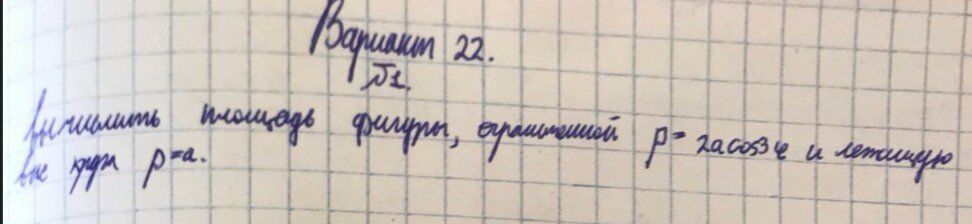 Вариант 22.
№1.
Вычислить площадь фигуры, ограниченной ρ=2acos3φ и лежащую
вне круга ρ=a.